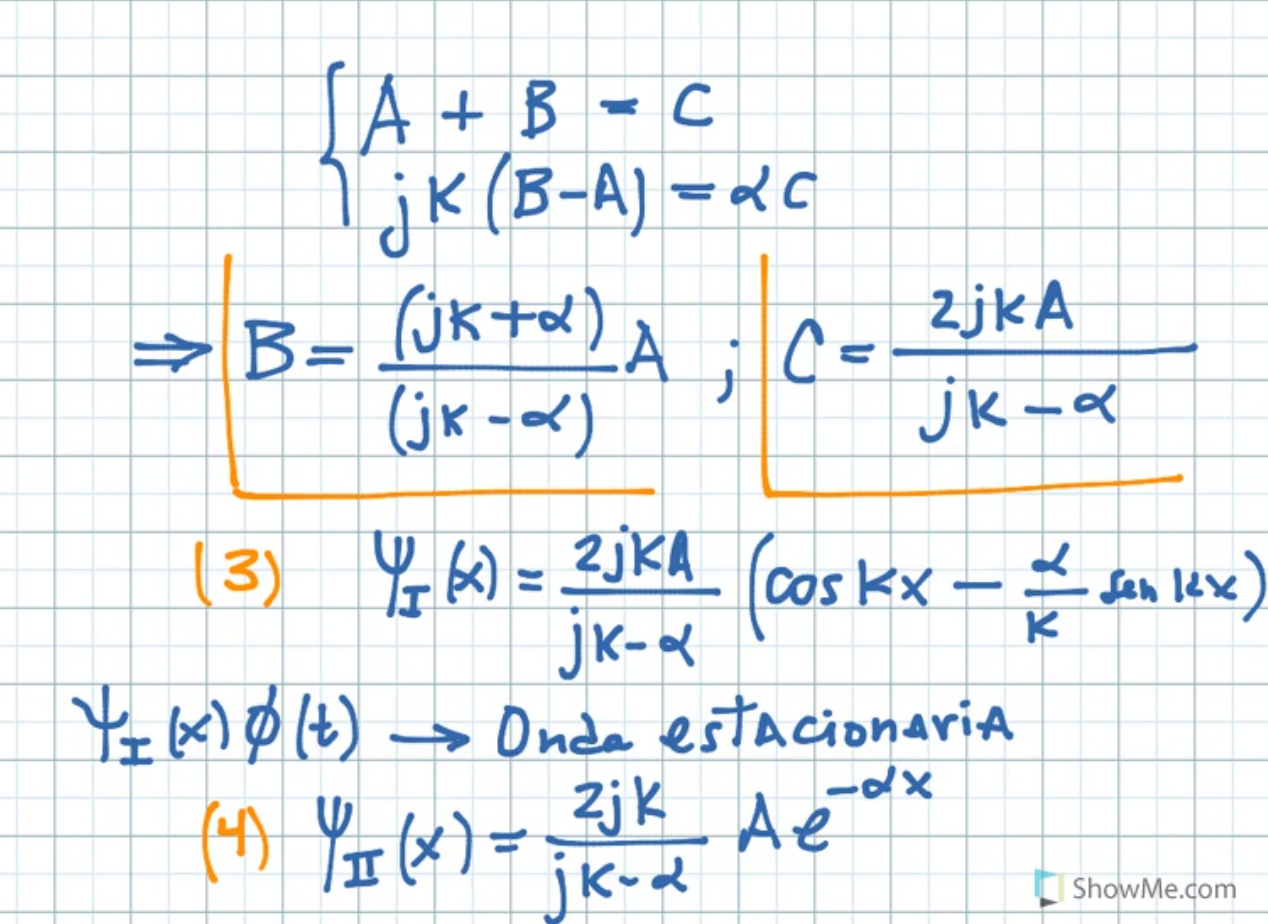 { A + B = C
jK (B-A) = αC
⇒ B = (jK+α)/(jK-α) A ; C = 2jKA/(jK-α)
(3) Ψ_I (x) = 2jKA/(jK-α) (cos Kx - α/K sen Kx)
Ψ_I (x) ϕ(t) → Onda estacionaria
(4) Ψ_II (x) = 2jK/(jK-α) A e^(-αx)
ShowMe.com